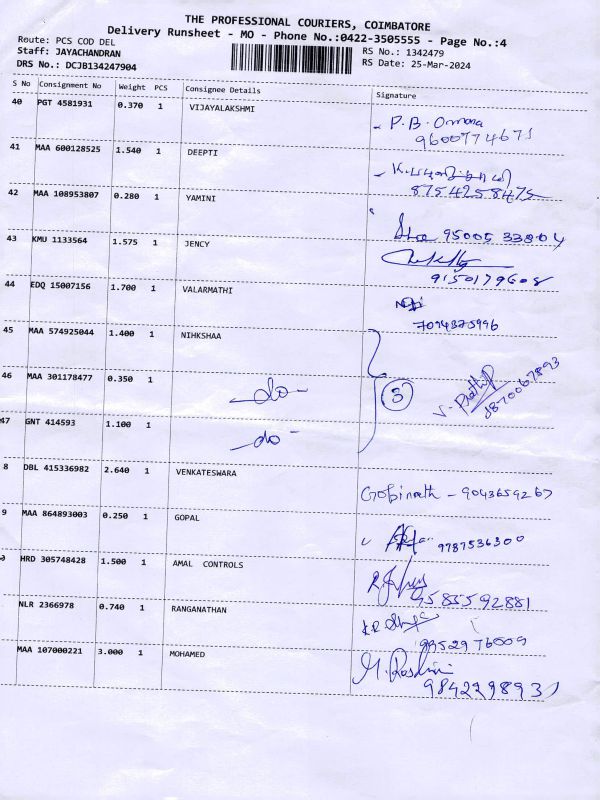 THE PROFESSIONAL COURIERS, COIMBATORE
Delivery Runsheet - MO - Phone No.:0422-3505555 - Page No.:4
Route: PCS COD DEL
Staff: JAYACHANDRAN
DRS No.: DCJB134247904
RS No.: 1342479
RS Date: 25-Mar-2024
S No Consignment No Weight PCS Consignee Details Signature
40 PGT 4581931 0.370 1 VIJAYALAKSHMI
9600774671
41 MAA 600128525 1.540 1 DEEPTI
8754258475
42 MAA 108953807 0.280 1 YAMINI
95005 33804
43 KMU 1133564 1.575 1 JENCY
9150179608
44 EDQ 15007156 1.700 1 VALARMATHI
7094375996
45 MAA 574925044 1.400 1 NIHKSHAA
46 MAA 301178477 0.350 1 -do- 3
47 GNT 414593 1.100 1 -do-
8 DBL 415336982 2.640 1 VENKATESWARA
Gobinath - 9043659267
9 MAA 864893003 0.250 1 GOPAL
9787536300
0 HRD 305748428 1.500 1 AMAL CONTROLS
9585592881
NLR 2366978 0.740 1 RANGANATHAN
9952976009
MAA 107000221 3.000 1 MOHAMED
M. Roshini
9842298931